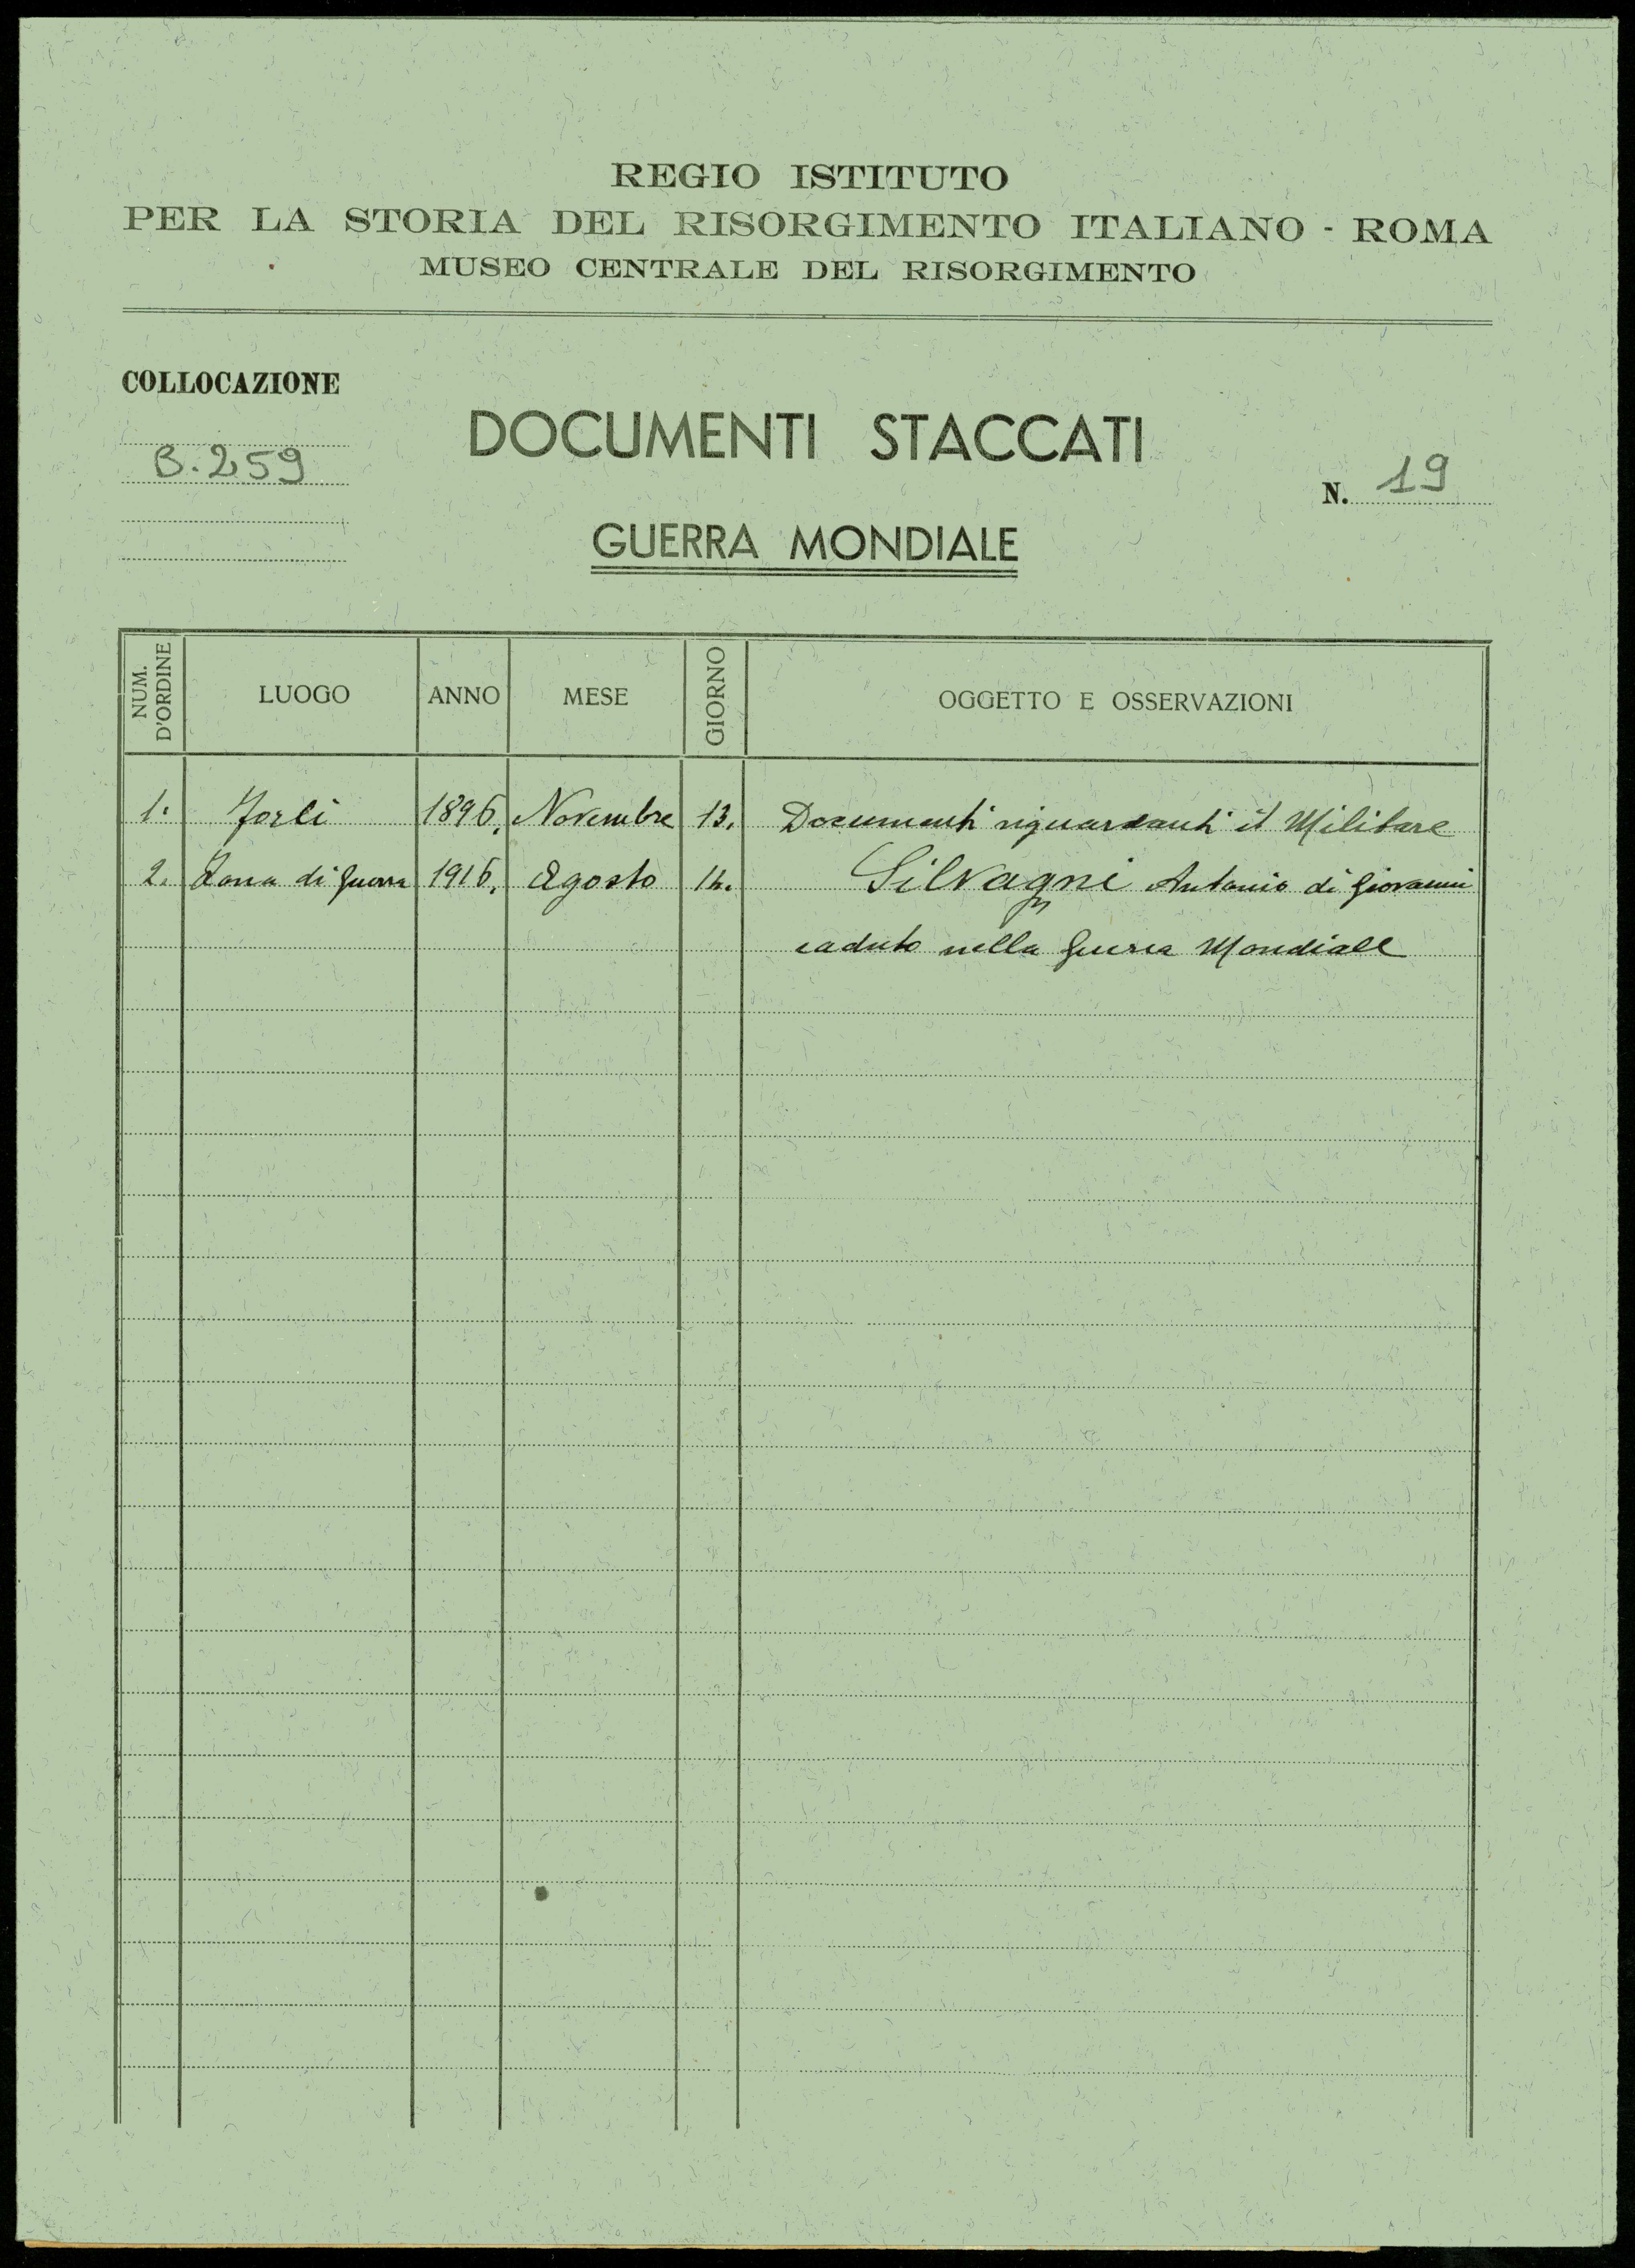 REGIO ISTITUTO
PER LA STORIA DEL RISORGIMENTO ITALIANO - ROMA
MUSEO CENTRALE DEL RISORGIMENTO
COLLOCAZIONE
B. 259
DOCUMENTI STACCATI
N. 19
GUERRA MONDIALE
NUM. D'ORDINE LUOGO ANNO MESE GIORNO OGGETTO E OSSERVAZIONI
1. Forlì 1896. Novembre 13. Documenti riguardanti il Militare
2. Zona di Guerra 1916. Agosto Silvagni Antonio di Giovanni
caduto nella Guerra Mondiale